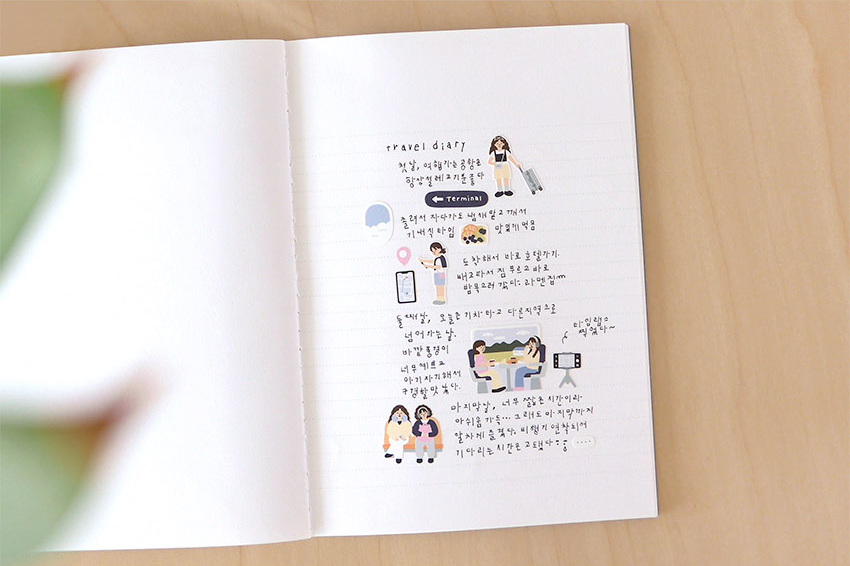 travel diary
첫날, 여행가는 공항은
항상 설레고 기분 좋다
← Terminal
졸려서 자다가도 냄새 맡고 깨서
기내식 타임 맛있게 먹음
도착해서 바로 호텔가기.
배고파서 짐 푸르고 바로
밥 먹으러 라멘집
둘째날, 오늘은 기차타고 다른지역으로
넘어가는 날.
바깥 풍경이
너무 예쁘고
아기자기해서
구경할 맛 났다.
타임랩스
찍었다~
마지막날, 너무 짧은 시간이라
아쉬움 가득... 그래도 마지막까지
알차게 즐겼다. 비행기 연착되서
기다리는 시간은 고됐다